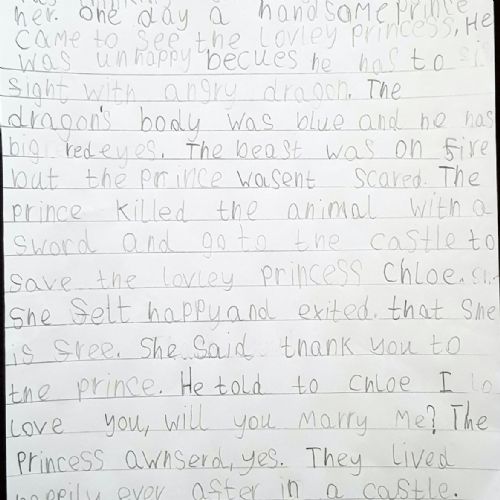 her. One day a handsome prince
came to see the lovley princess, He
was unhappy becues he has to
sight with angry dragon. The
dragon's body was blue and he has
big red eyes. The beast was on fire
but the prince wasent scared. The
prince killed the animal with a
sword and go to the castle to
save the lovley princess Chloe.
She felt happy and exited. that She
is free. She Said thank you to
the prince. He told to Chloe I lo
Love you, will you Marry Me? The
Princess awnserd, yes. They lived
happily ever after in a castle.